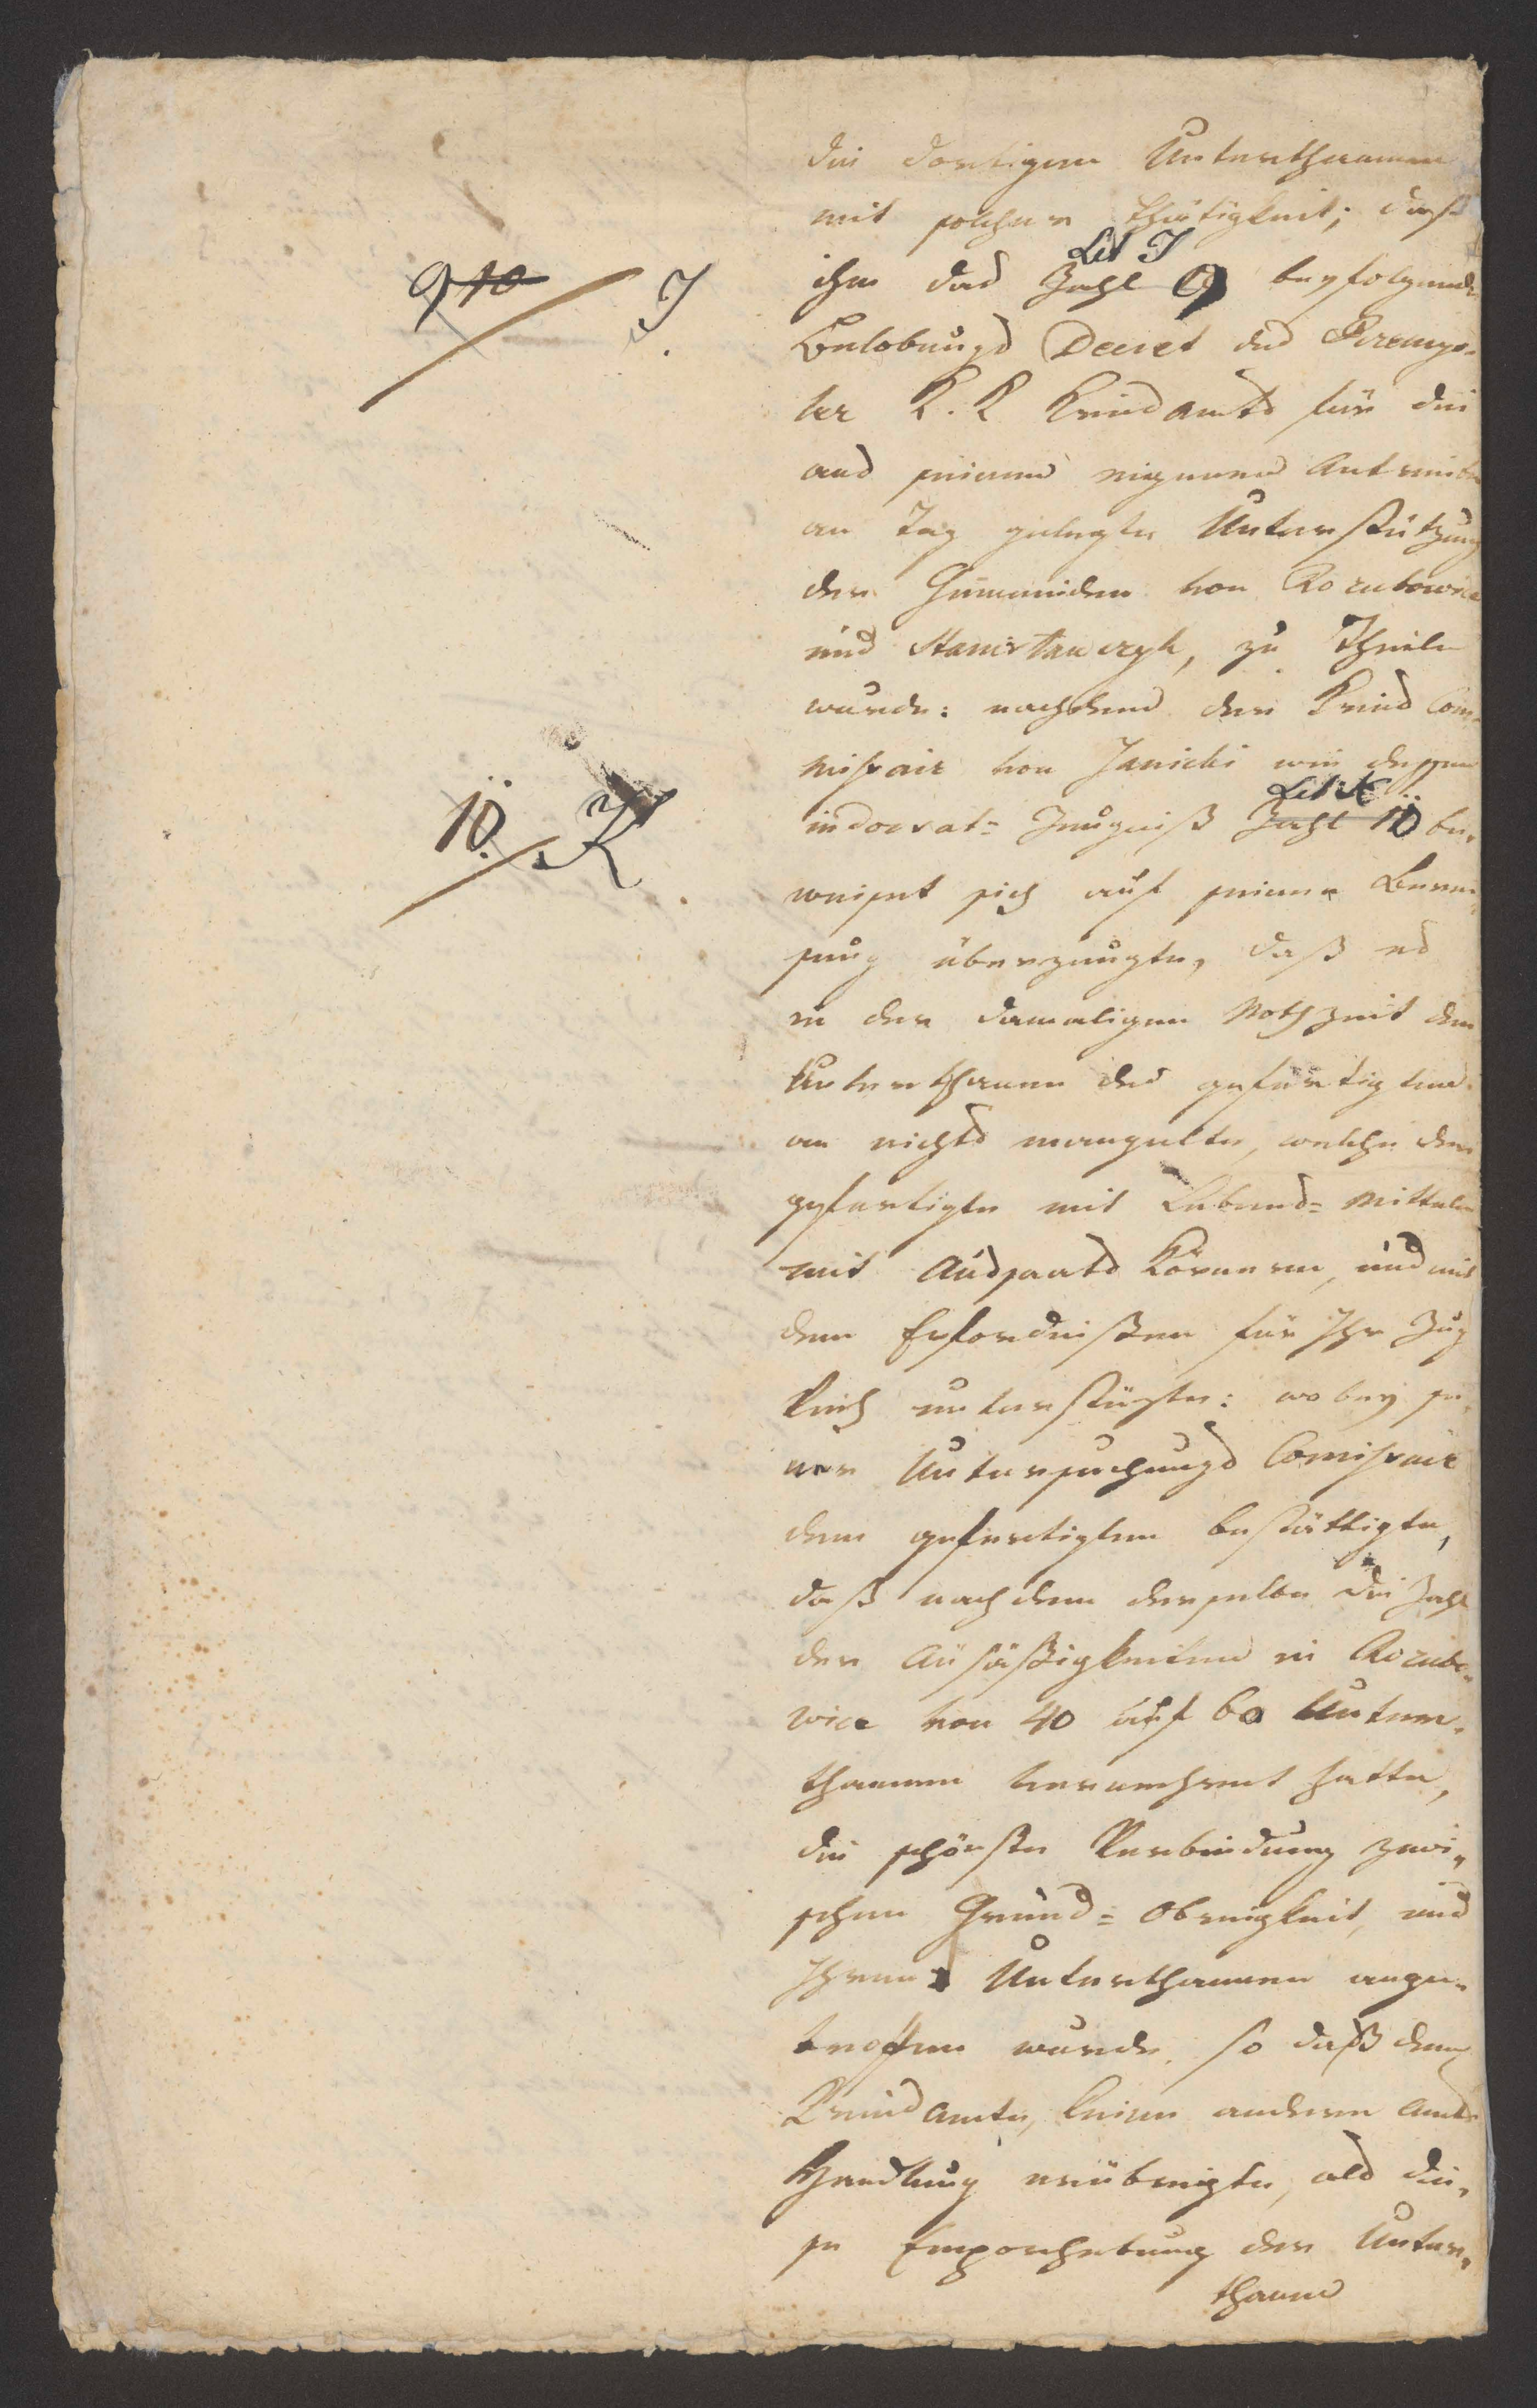 die dortigen Unterthannen
mit solcher Thätigkeit; daß
Lit J
9 10 J
ihm das Zahl 9 beyfolgende
Belobungs Decret des Przemys-
ler K. K Kreisamts für die
aus seinem eignem Antriebe
an Tag gelegte Unterstützung
der Gemeinden von Rozubowice
und Stanislawczyk, zu Theile
wurde: nachdem der Kreis Com-
missair von Janicki wie dessen
Lit K
10. K
indorsat= Zeugniß Zahl 10 be-
weiset sich auf seiner Berei-
sung überzeugte, daß es
in der damaligen Nothzeit den
Unterthanen des gefertigten
an nichts mangelte, welche der
gefertigte mit Lebens= Mitteln
mit Aussaats Körnern, und mit
den Erfordnißen für Ihr Zug
Vieh unterstüzte: wobey je-
ner Untersuchungs Comissair
dem gefertigten bestättigte,
daß nachdem derselbe die Zahl
der Ansäßigkeiten in Rozubo-
wice von 40 auf 60 Unter-
thannen vermehret hatte,
die schönste Verbindung zwi-
schen Grund= Obrigkeit, und
Ihren Unterthannen ange-
troffen wurde, so daß dem
Kreisamte, keine andere Amts
Handlung erübrigte, als die-
se Emporhebung der Unter-
thanen